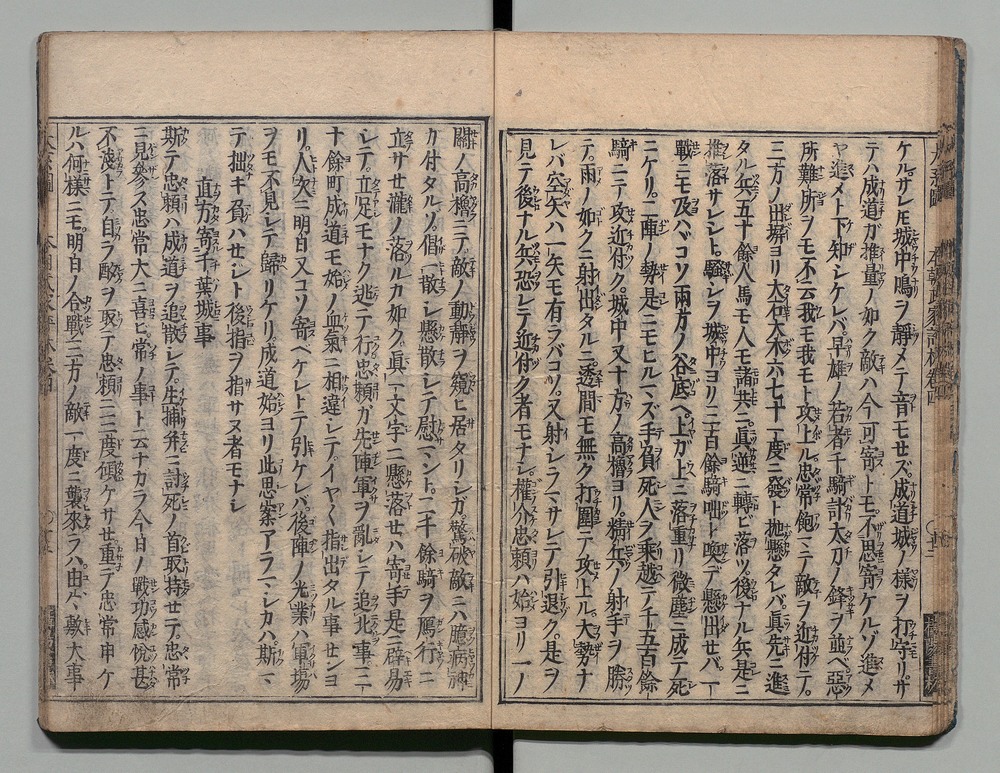 ケルサレ𪜈城中鳴ヲ靜メテ音モセズ成道城ノ様ヲ打守リサ
テハ成道ガ推量ノ如ク敵ハ今可寄トモ不思寄ケルゾ進メ
ヤ進メト下知シケレバ早雄ノ若者千騎計太刀ノ鋒ヲ並ベ惡
所難所ヲモ不云我モ我モト攻上ル忠常飽マテ敵ヲ近付テ
二方ノ出塀ヨリ大石大木六七十一度ニ發ト抛懸タレバ眞先ニ進
タル兵五十餘人馬モ人モ諸共ニ眞逆ニ轉ビ落ツ後ナル兵是ニ
推落サレシト騒シヲ城中ヨリ三百餘騎咄ト喚デ懸出セバ一
戰ニモ及ハバコソ兩方ノ谷底ヘ上カ上ニ落重リ微塵ニ成テ死
ニケリ二陣ノ勢是ニモヒルマズ手負死人ヲ乘越テ千五百餘
騎ニテ攻近付ク城中又十方ノ高櫓ヨリ精兵ノ射手ヲ勝
テ雨ノ如クニ射出タルニ透間モ無ク打圍テ攻上ル大勢ナ
レバ空矢ハ一矢モ有ラバコソ又射シラマサレテ引退ク是ヲ
見テ後ナル兵恐レテ近付ク者モナシ權介忠頼ハ始ヨリ一ノ
關ノ高櫓ニテ敵ノ動靜ヲ窺ヒ居タリシガ驚破敵ニハ臆病神
カ付タルゾ倡一散シ懸散レテ慰マントテ一千餘騎ヲ鴈行ニ
立サセ瀧ノ落ルカ如ク眞一文字ニ懸落セハ寄手是ニ辟易
シテ立足モナク逃テ行忠頼ガ先陣軍ヲ亂レテ追北事二三
十餘町成道モ始ノ血氣ニ相違シテイヤ〱指出タル事セシヨ
リ人次ニ明白又コソ寄ヘケレトテ引ケレバ後陣ノ光業ハ軍場
ヲモ不見シテ歸リケリ成道始ヨリ此思案アラマシカハ斯マ
テ拙キ負ハセシト後指ヲ指サヌ者モナシ
直方寄千葉城事
斯テ忠頼ハ成道ヲ追散シテ生捕幷ニ討死ノ首取持セテ忠常
ニ見參ス忠常大ニ喜ヒ常ノ事ト云ナカラ今日ノ戰功感悦甚
不淺トテ自ラ酌ヲ取テ忠頼ニ三度傾ケサセ重テ忠常申ケ
ルハ何樣ニモ明日ノ合戰三方ノ敵一度ニ襲來ラハ由々敷大事